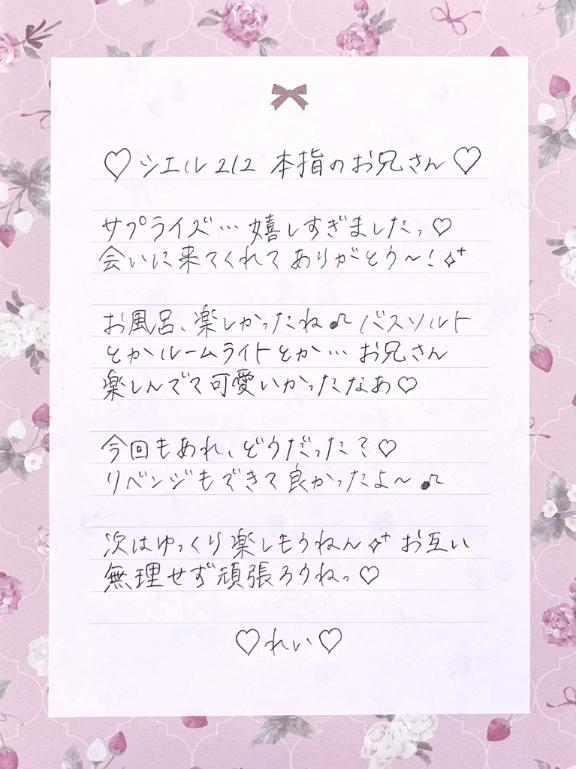 ♡シエル 212 本指のお兄さん♡
サプライズ…嬉しすぎましたっ♡
会いに来てくれてありがとう〜！✧⁺
お風呂、楽しかったね♫ バスソルト
とかルームライトとか…お兄さん
楽しんでて可愛いかったなあ♡
今回もあれ、どうだった？♡
リベンジもできて良かったよ〜♪
次はゆっくり楽しもうねん✧⁺ お互い
無理せず頑張ろうねっ♡
♡れい♡